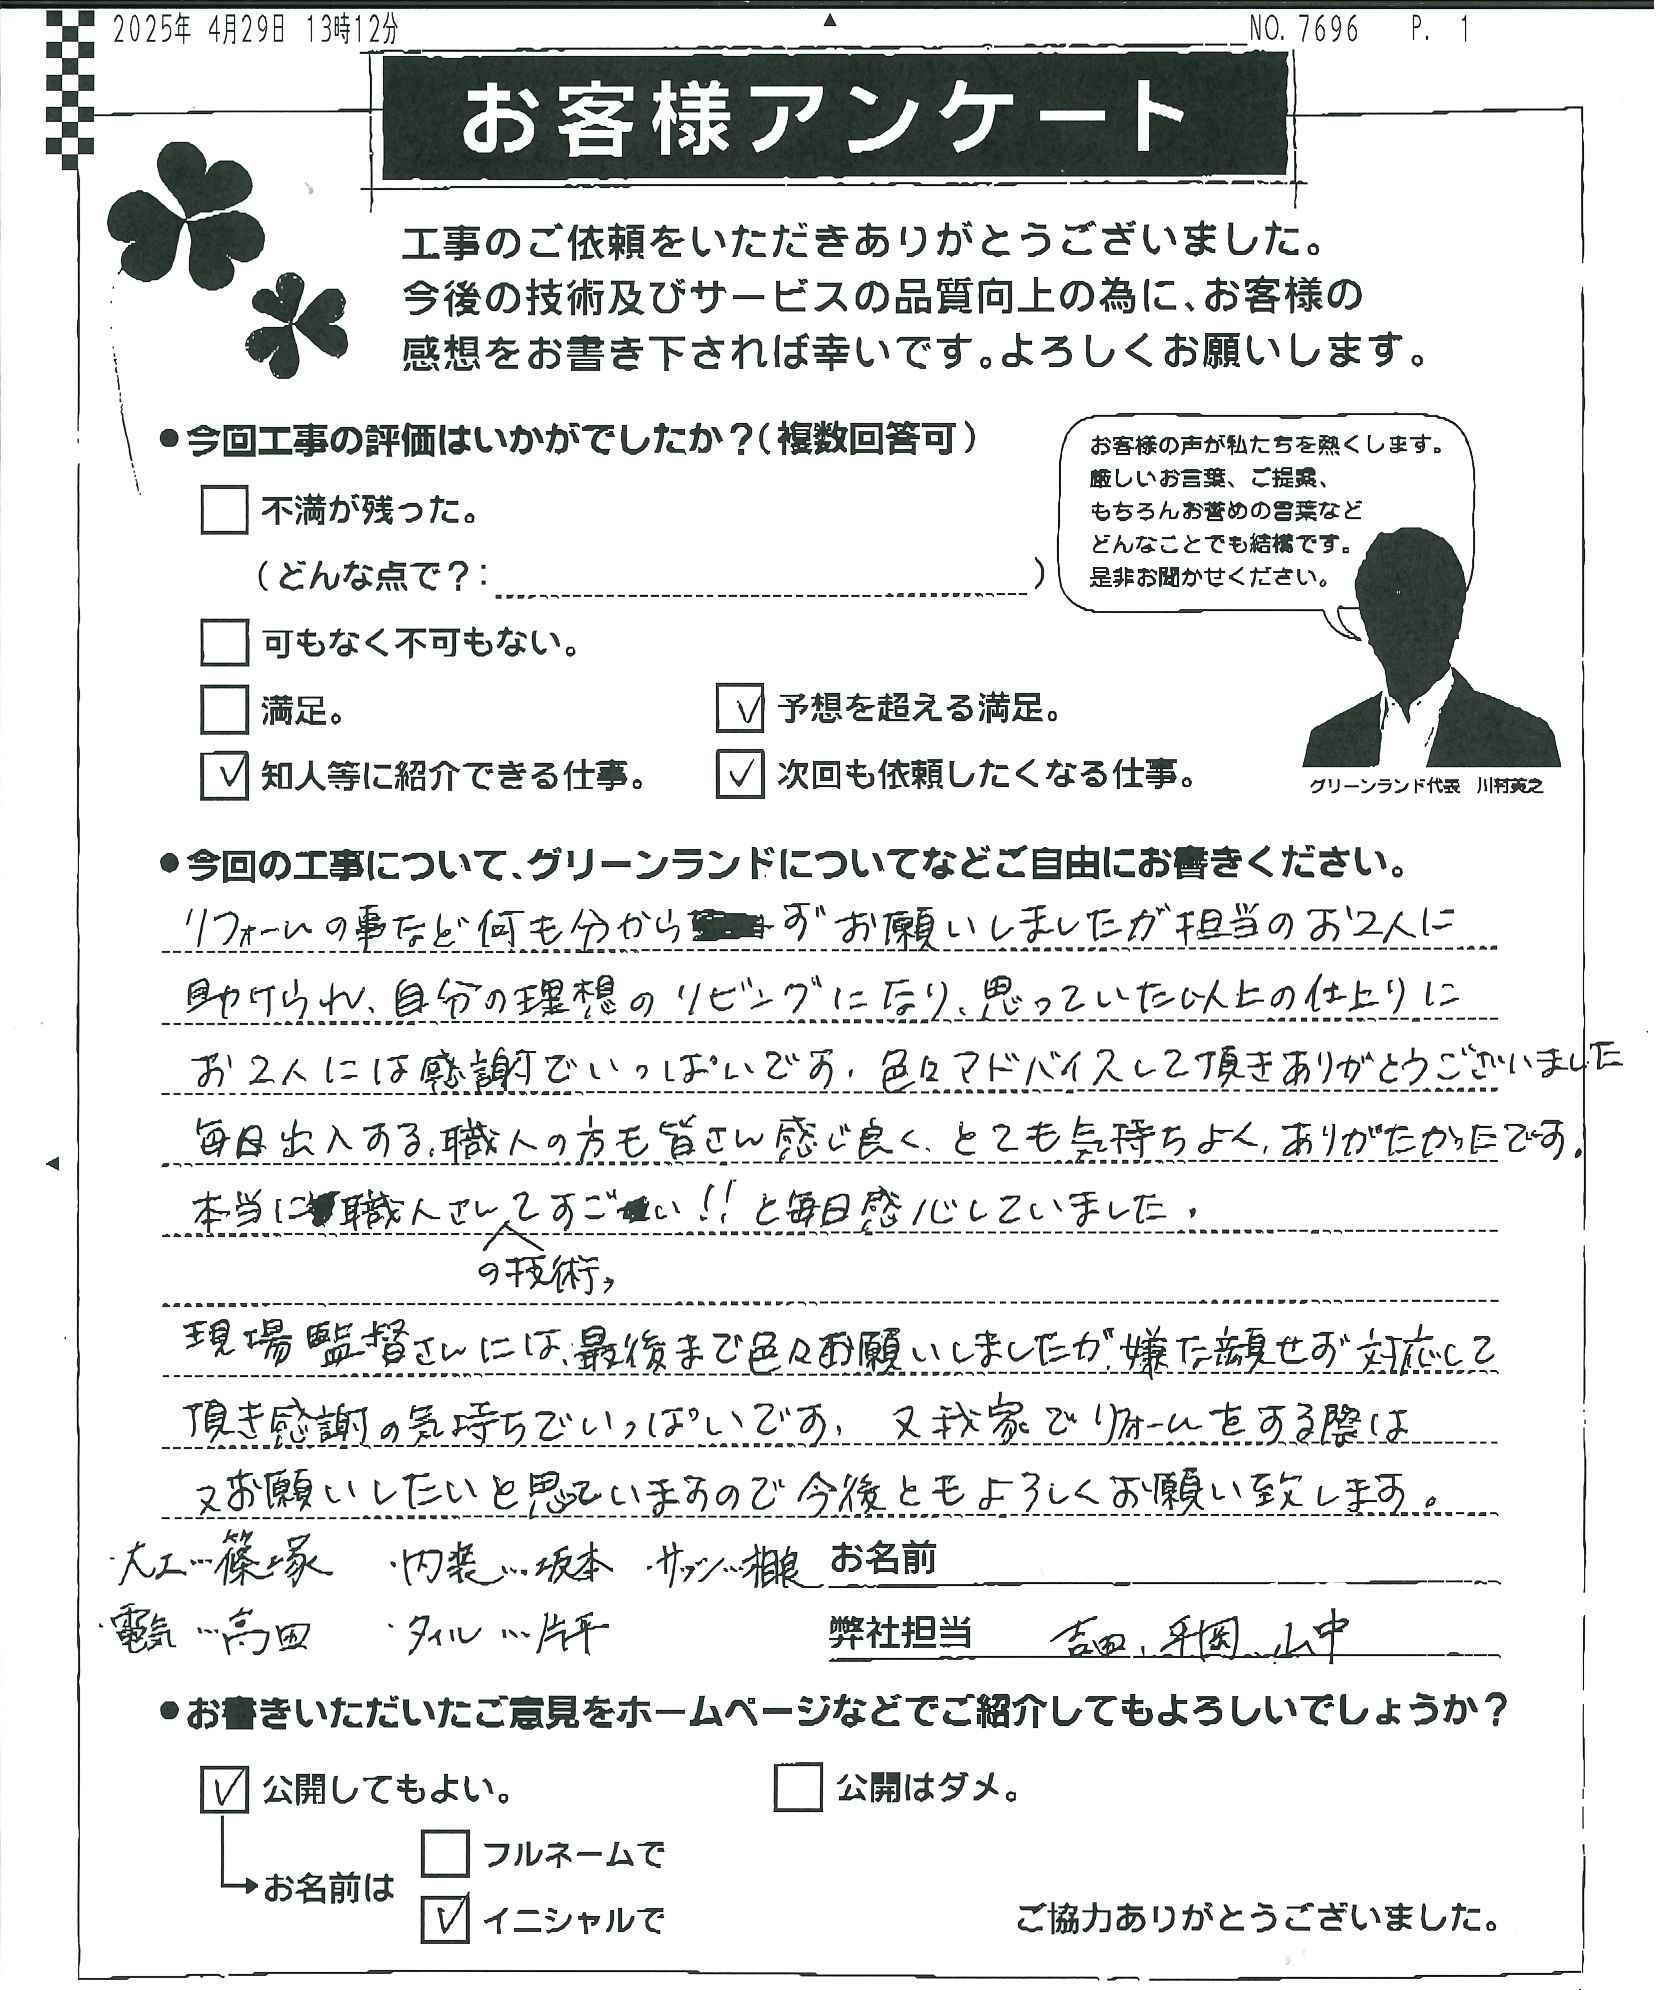 2025年 4月29日 13時12分 NO. 7696 P. 1
お客様アンケート
工事のご依頼をいただきありがとうございました。
今後の技術及びサービスの品質向上の為に、お客様の
感想をお書き下されば幸いです。よろしくお願いします。
●今回工事の評価はいかがでしたか？（複数回答可）
お客様の声が私たちを熱くします。
厳しいお言葉、ご提案、
もちろんお誉めの言葉など
どんなことでも結構です。
是非お聞かせください。
グリーンランド代表 川村英之
不満が残った。
（どんな点で？： ）
可もなく不可もない。
満足。
✓ 予想を超える満足。
✓ 知人等に紹介できる仕事。
✓ 次回も依頼したくなる仕事。
●今回の工事について、グリーンランドについてなどご自由にお書きください。
リフォームの事など何も分からずお願いしましたが担当のお2人に
助けられ、自分の理想のリビングになり、思っていた以上の仕上りに
お2人には感謝でいっぱいです。色々アドバイスして頂きありがとうございました
毎日出入する、職人の方も皆さん感じ良く、とても気持ちよく、ありがたかったです。
本当に職人さんてすごい!!と毎日感心していました。
の技術、
現場監督さんには、最後まで色々お願いしましたが、嫌な顔せず対応して
頂き感謝の気持ちでいっぱいです。又我家でリフォームをする際は
又お願いしたいと思っていますので今後ともよろしくお願い致します。
・大工…篠塚 ・内装…坂本 サッシ…相良 お名前
・電気…高田 ・タイル…片平 弊社担当 吉田、平岡、山中
●お書きいただいたご意見をホームページなどでご紹介してもよろしいでしょうか？
✓ 公開してもよい。
公開はダメ。
お名前は
フルネームで
✓ イニシャルで
ご協力ありがとうございました。